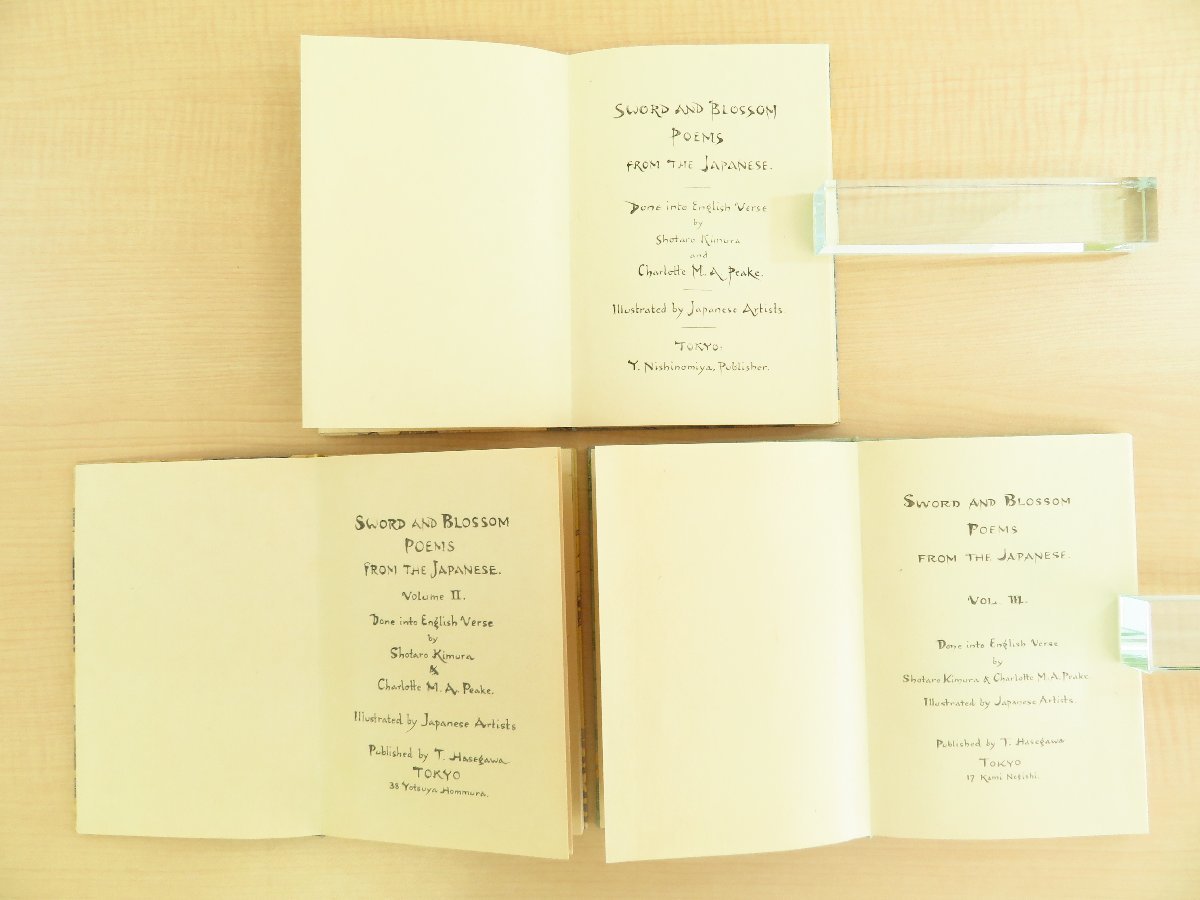 SWORD AND BLOSSOM
POEMS
FROM THE JAPANESE.
Done into English Verse
by
Shotaro Kimura
and
Charlotte M. A. Peake.
Illustrated by Japanese Artists.
TOKYO:
Y. Nishinomiya, Publisher.
SWORD AND BLOSSOM
POEMS
FROM THE JAPANESE.
Volume II.
Done into English Verse
by
Shotaro Kimura
&
Charlotte M. A. Peake.
Illustrated by Japanese Artists
Published by T. Hasegawa
TOKYO
38 Yotsuya Hommura.
SWORD AND BLOSSOM
POEMS
FROM THE JAPANESE.
VOL. III.
Done into English Verse
by
Shotaro Kimura & Charlotte M. A. Peake.
Illustrated by Japanese Artists.
Published by T. Hasegawa
TOKYO
17 Kami Negishi.